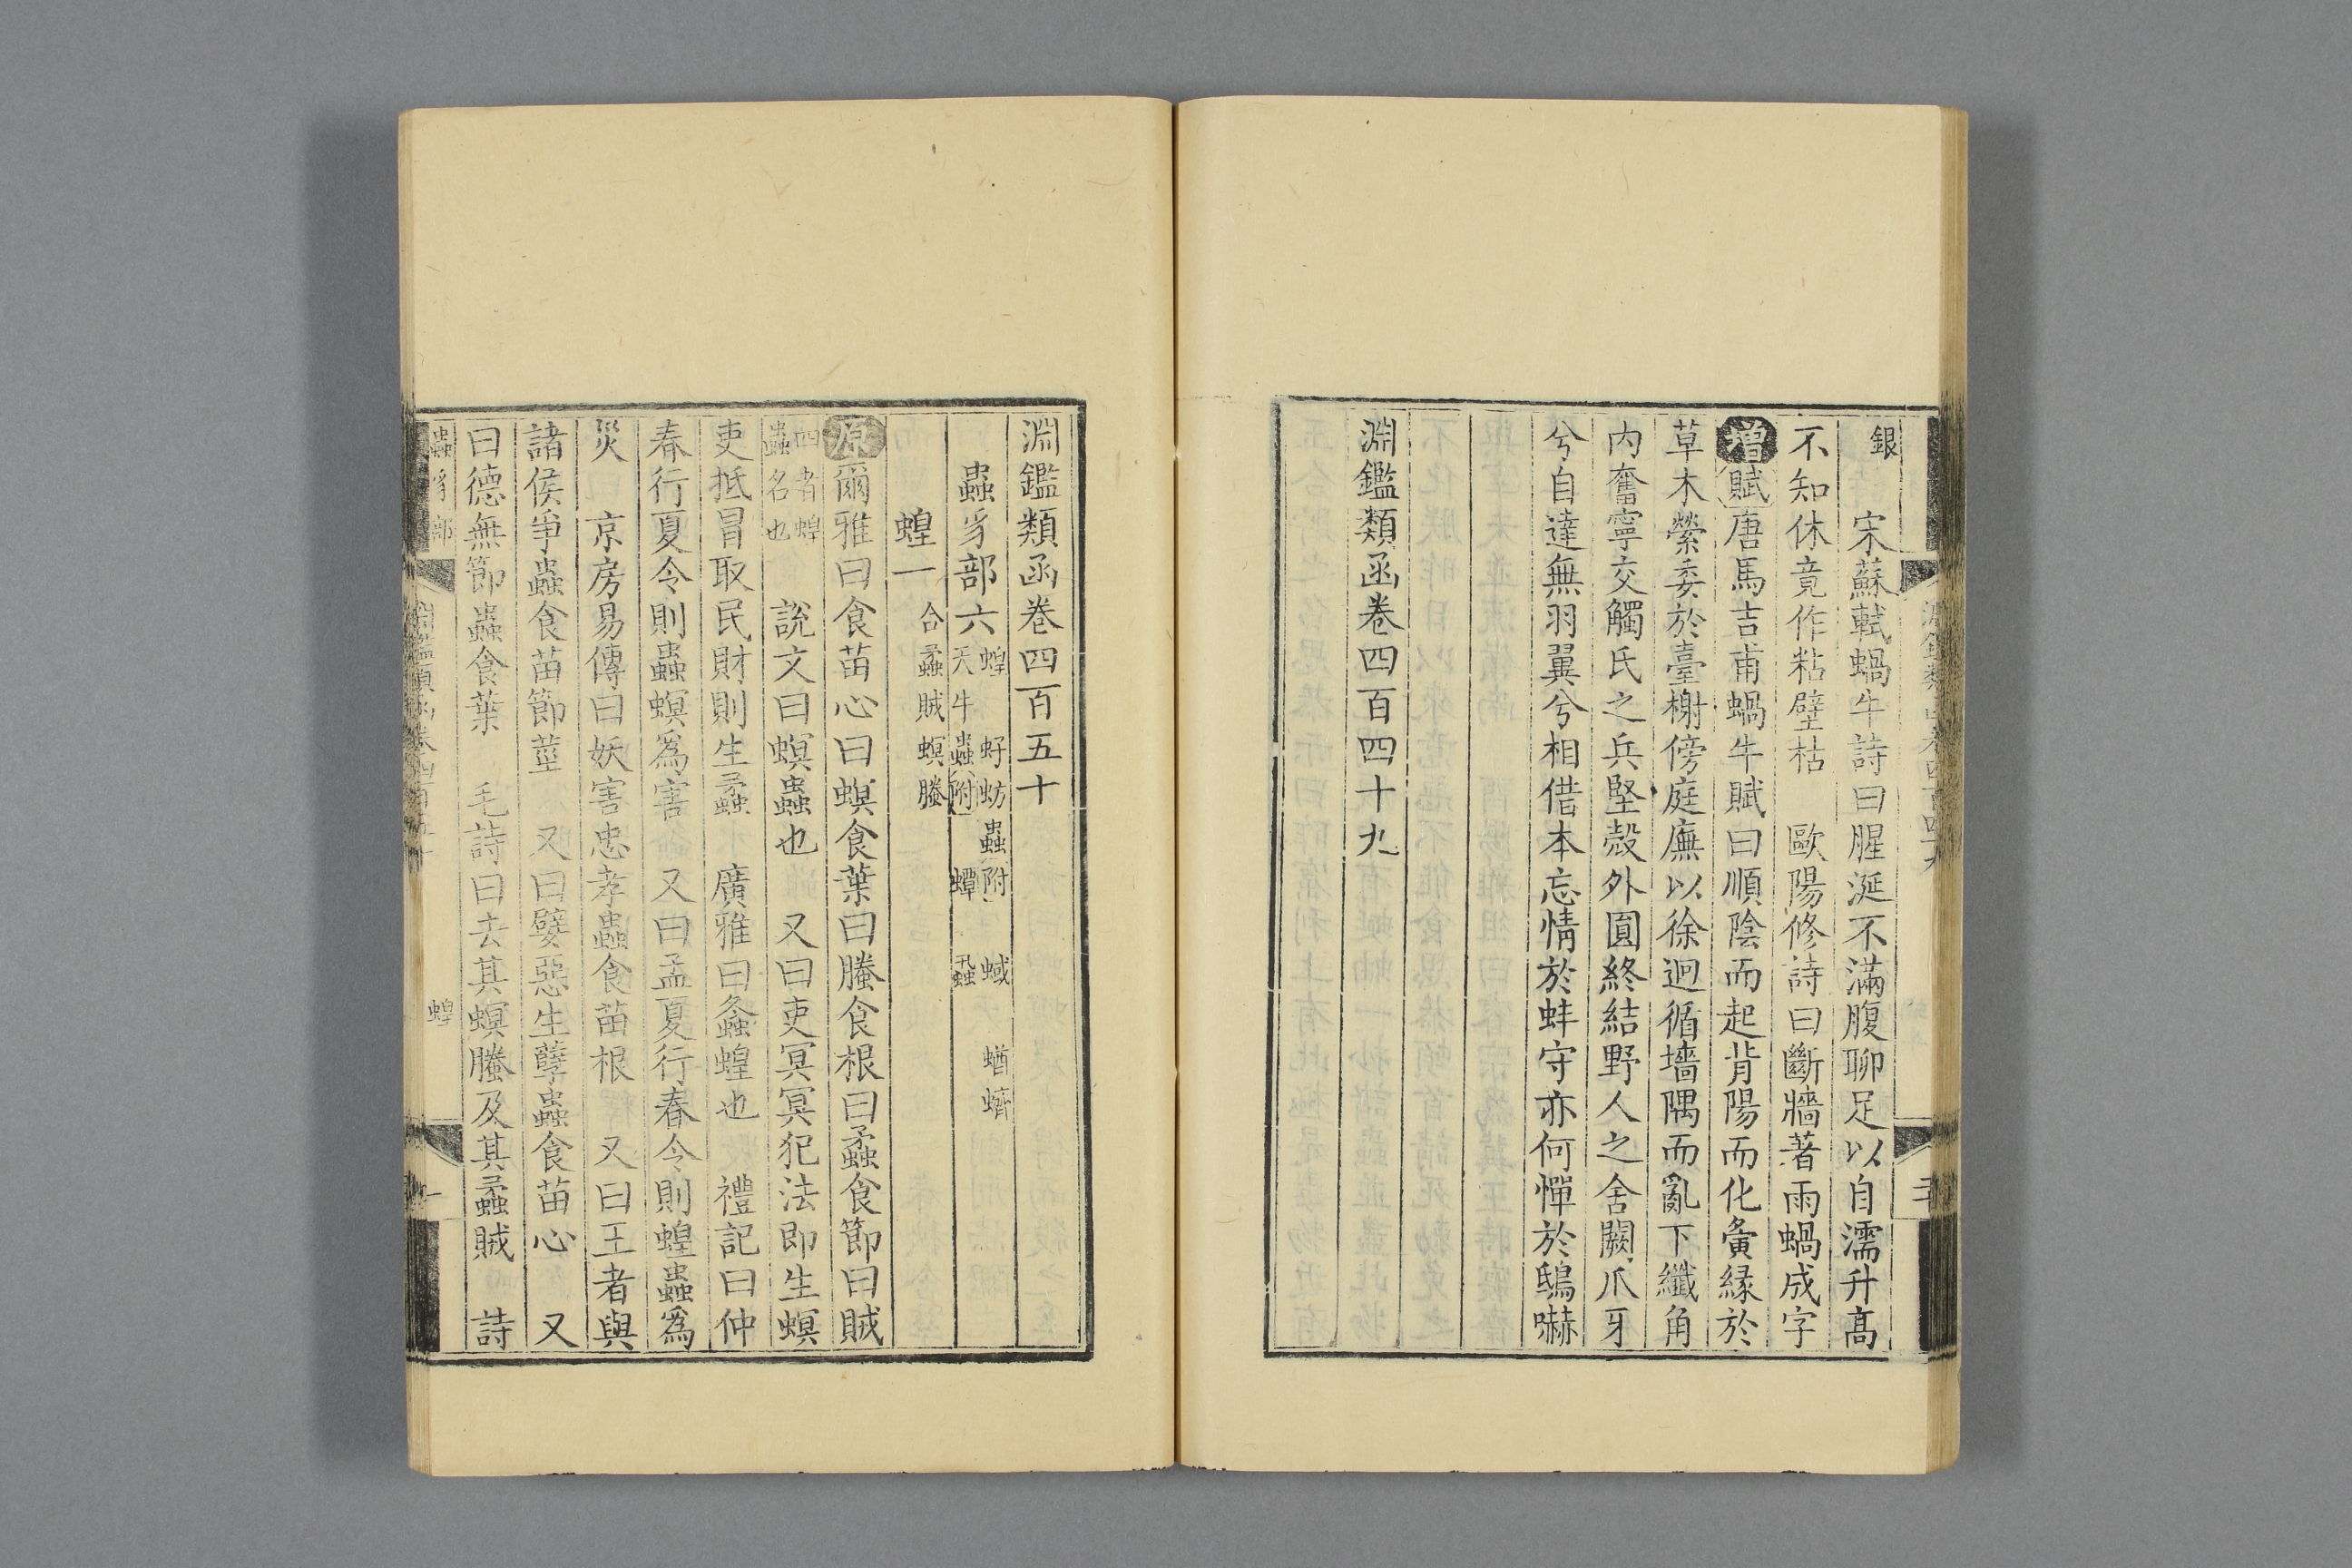 銀　宋蘇軾蝸牛詩曰腥涎不滿腹聊足以自濡升髙
不知休竟作粘壁枯　歐陽修詩曰斷牆著雨蝸成字
增賦唐馬吉甫蝸牛賦曰順陰而起背陽而化夤緣於
草木縈委於臺榭傍庭廡以徐迴循墻隅而亂下纖角
内奮寧交觸氏之兵堅殼外圓終結野人之舍闕爪牙
兮自達無羽翼兮相借本忘情於蚌守亦何憚於鴟嚇
淵鑑類函卷四百四十九
淵鑑類函卷四百五十
蟲豸部六 蝗 虸蚄蟲附 蜮 蝤蠐
天牛蟲附 蟫
蝗一 合蟊賊螟螣
原爾雅曰食苗心曰螟食葉曰螣食根曰蟊食節曰賊
四者蝗
蟲名也　說文曰螟蟲也　又曰吏冥冥犯法即生螟
吏抵冒取民財則生蟊　廣雅曰螽蝗也　禮記曰仲
春行夏令則蟲螟為害　又曰孟夏行春令則蝗蟲為
災　京房易傳曰妖害忠孝蟲食苗根　又曰王者與
諸侯爭蟲食苗節莖　又曰嬖惡生孽蟲食苗心　又
曰德無節蟲食葉　毛詩曰去其螟螣及其蟊賊　詩
蟲豸部
蝗